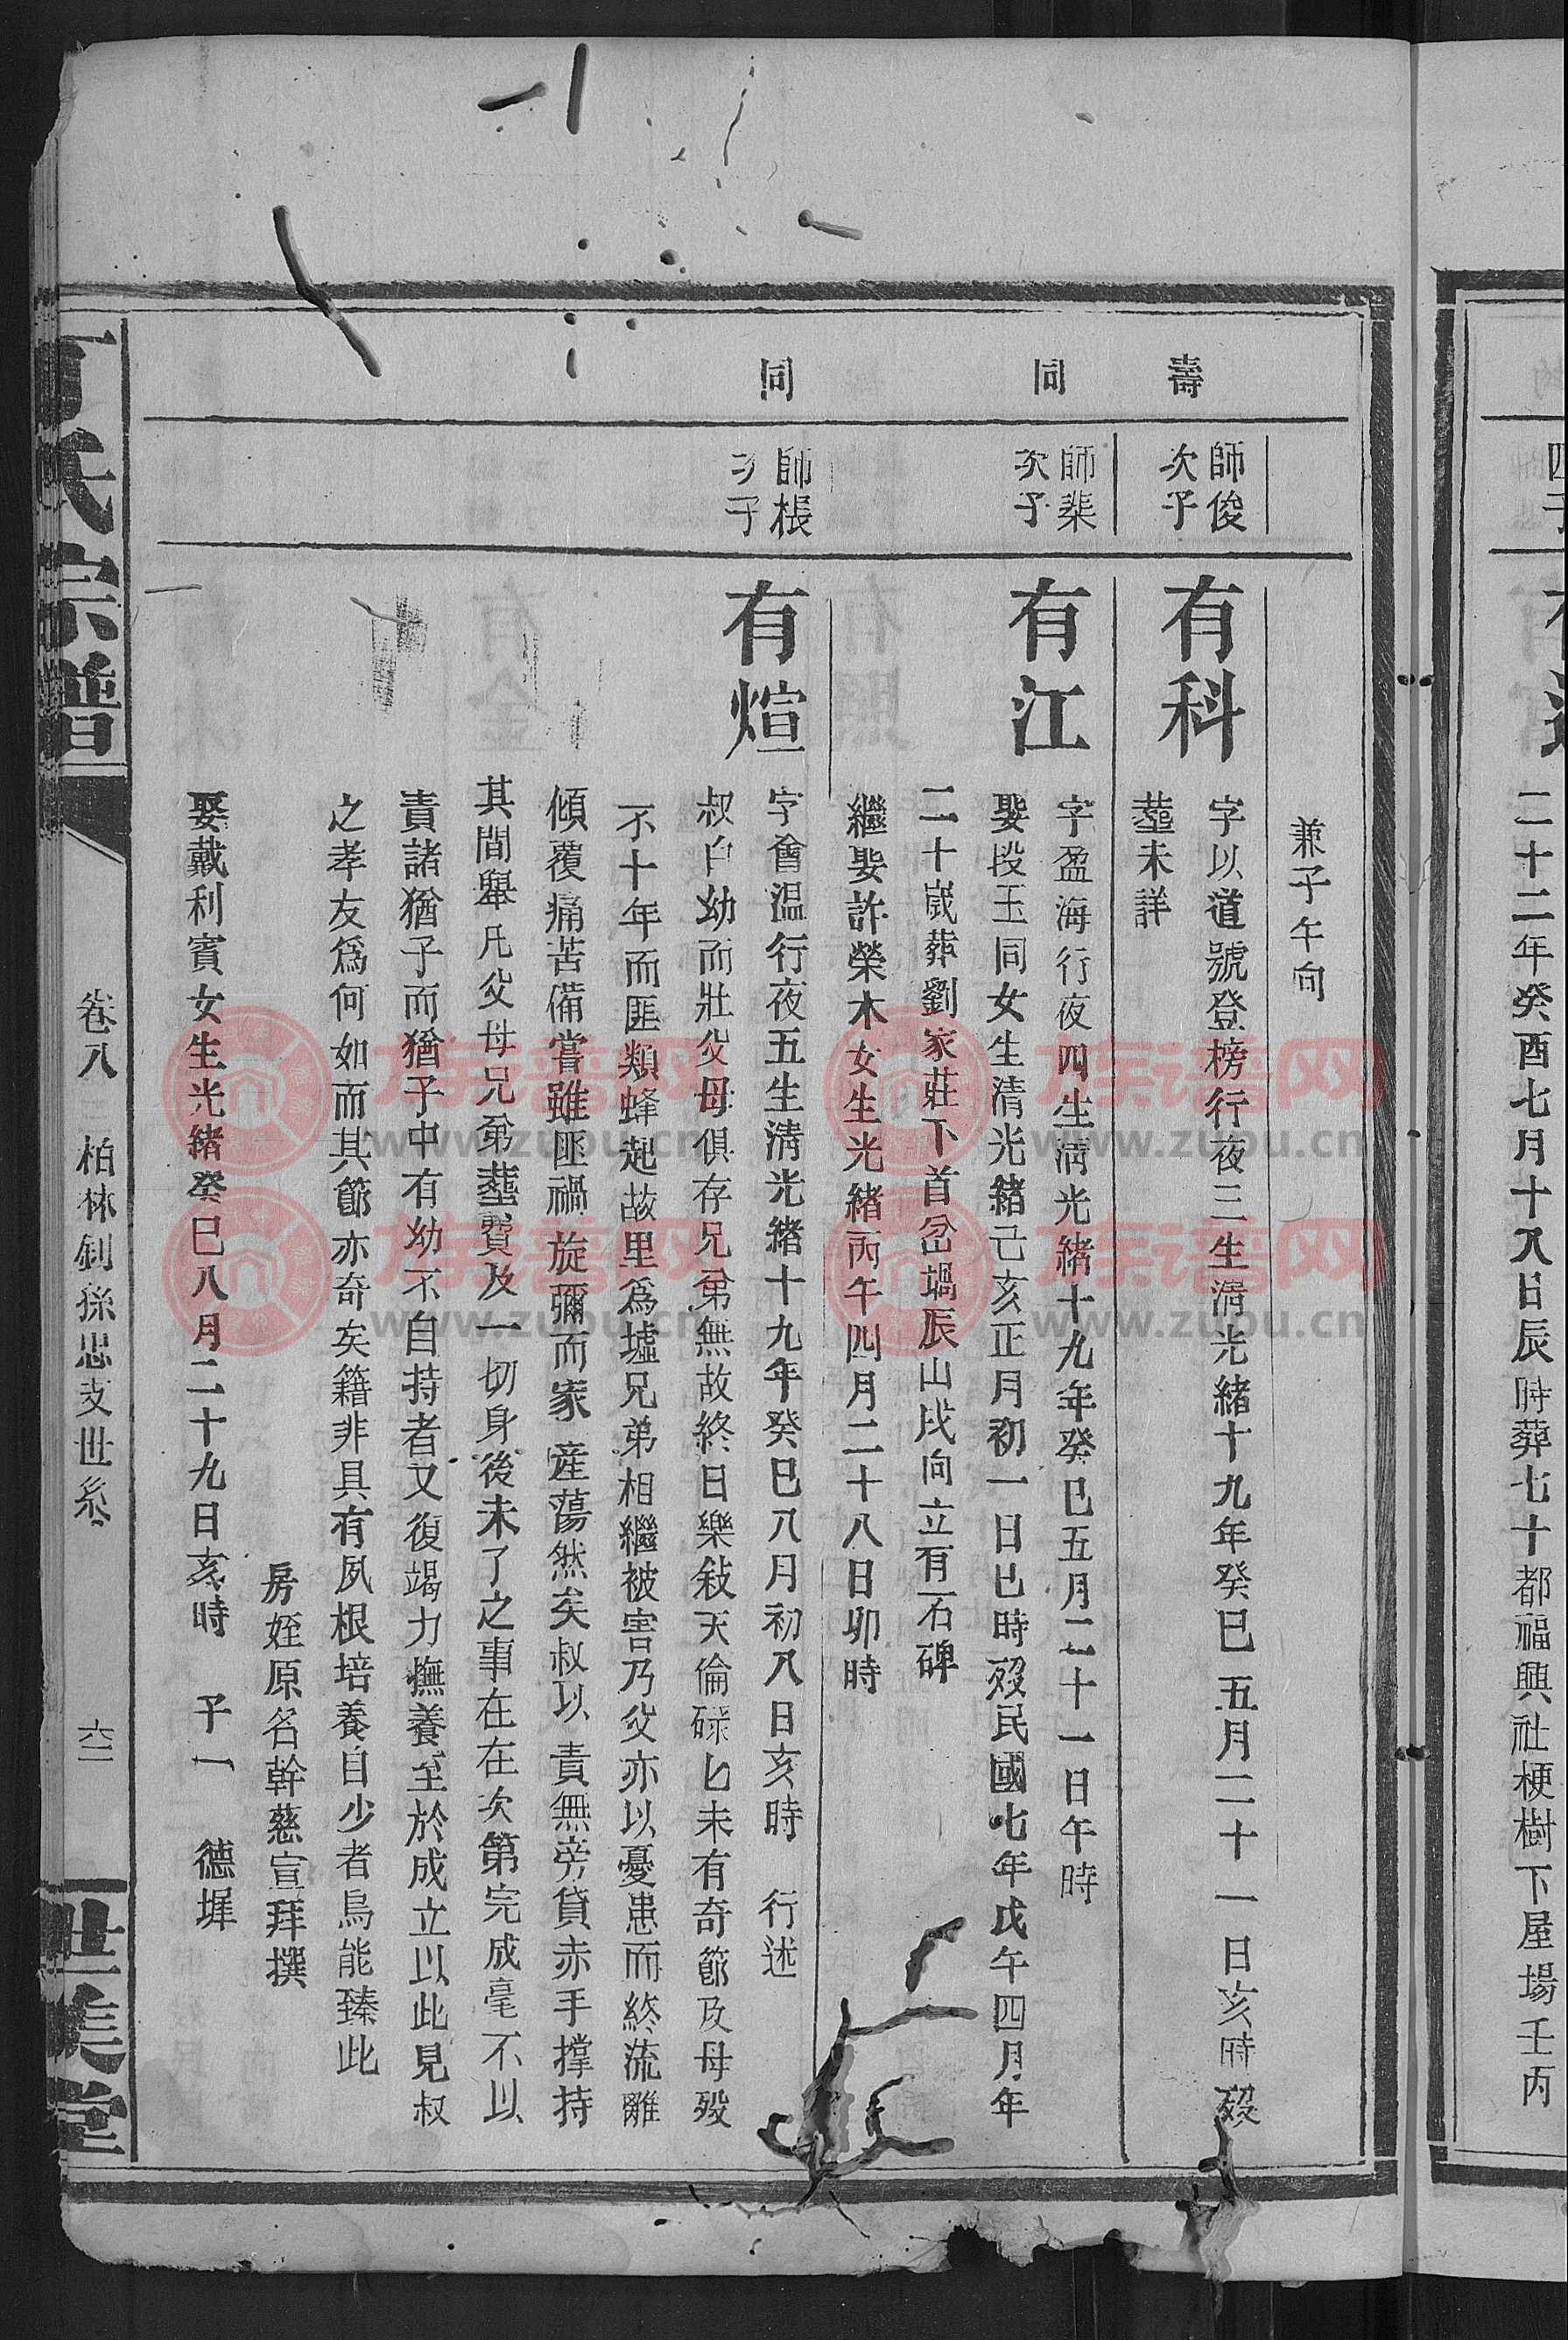 四子
二十二年癸酉七月十八日辰時葬七十都福興社梗樹下屋場壬丙
兼子午向
壽
師俊
次子
有科
字以道號登榜行夜三生清光緒十九年癸巳五月二十一日亥時歿
塟未詳
同
師棐
次子
有江
字盈海行夜四生清光緒十九年癸巳五月二十一日午時
娶段玉同女生清光緒己亥正月初一日巳時歿民國七年戊午四月年
二十歲葬劉家莊下首岔塌辰山戌向立有石碑
繼娶許榮木女生光緒丙午四月二十八日卯時
同
師棖
次子
有煊
字會温行夜五生清光緒十九年癸巳八月初八日亥時 行述
叔自幼而壯父母俱存兄弟無故終日樂敍天倫碌匕未有奇節及母歿
不十年而匪類蜂起故里爲墟兄弟相繼被害乃父亦以憂患而終流離
傾覆痛苦備嘗雖匪禍旋彌而家產蕩然矣叔以責無旁貸赤手撐持
其間舉凡父母兄弟塟費及一切身後未了之事在在次第完成毫不以
責諸猶子而猶子中有幼不自持者又復竭力撫養至於成立以此見叔
之孝友爲何如而其節亦奇矣籍非具有夙根培養自少者烏能臻此
房姪原名幹慈宣拜撰
娶戴利賓女生光緒癸巳八月二十九日亥時 子一 德墀
氏宗譜
卷八
柏林釗孫忠支世系
六二
世美堂
族谱网
www.zupu.cn
族谱网
www.zupu.cn
族谱网
www.zupu.cn
族谱网
www.zupu.cn